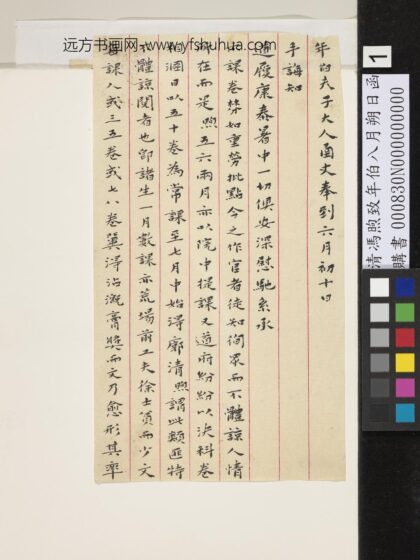 远方书画网 www.yfshuhua.com
年伯夫子大人函丈奉到六月初十日
手誨知
近履康泰署中一切俱安深慰馳系承
課卷棼如重勞批點今之作官者徒知徇眾而不體諒人情
在而是煦五六兩月亦以院中提課又道府紛紛以決科卷
相溷日以五十卷為常課至七月中始得廓清煦謂此類匪特
體諒閱者也即諸生一月數課亦荒場前工夫徐士質而少文
課人或三五卷或七八卷冀得沾溉膏獎而文乃愈形其率
1
清馮煦致年伯八月朔日函
購書 000830N000000000